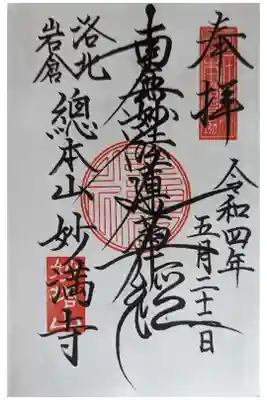 奉拝
令和四年
五月二十二日
南無妙法蓮華経
洛北
岩倉
總本山 妙満寺